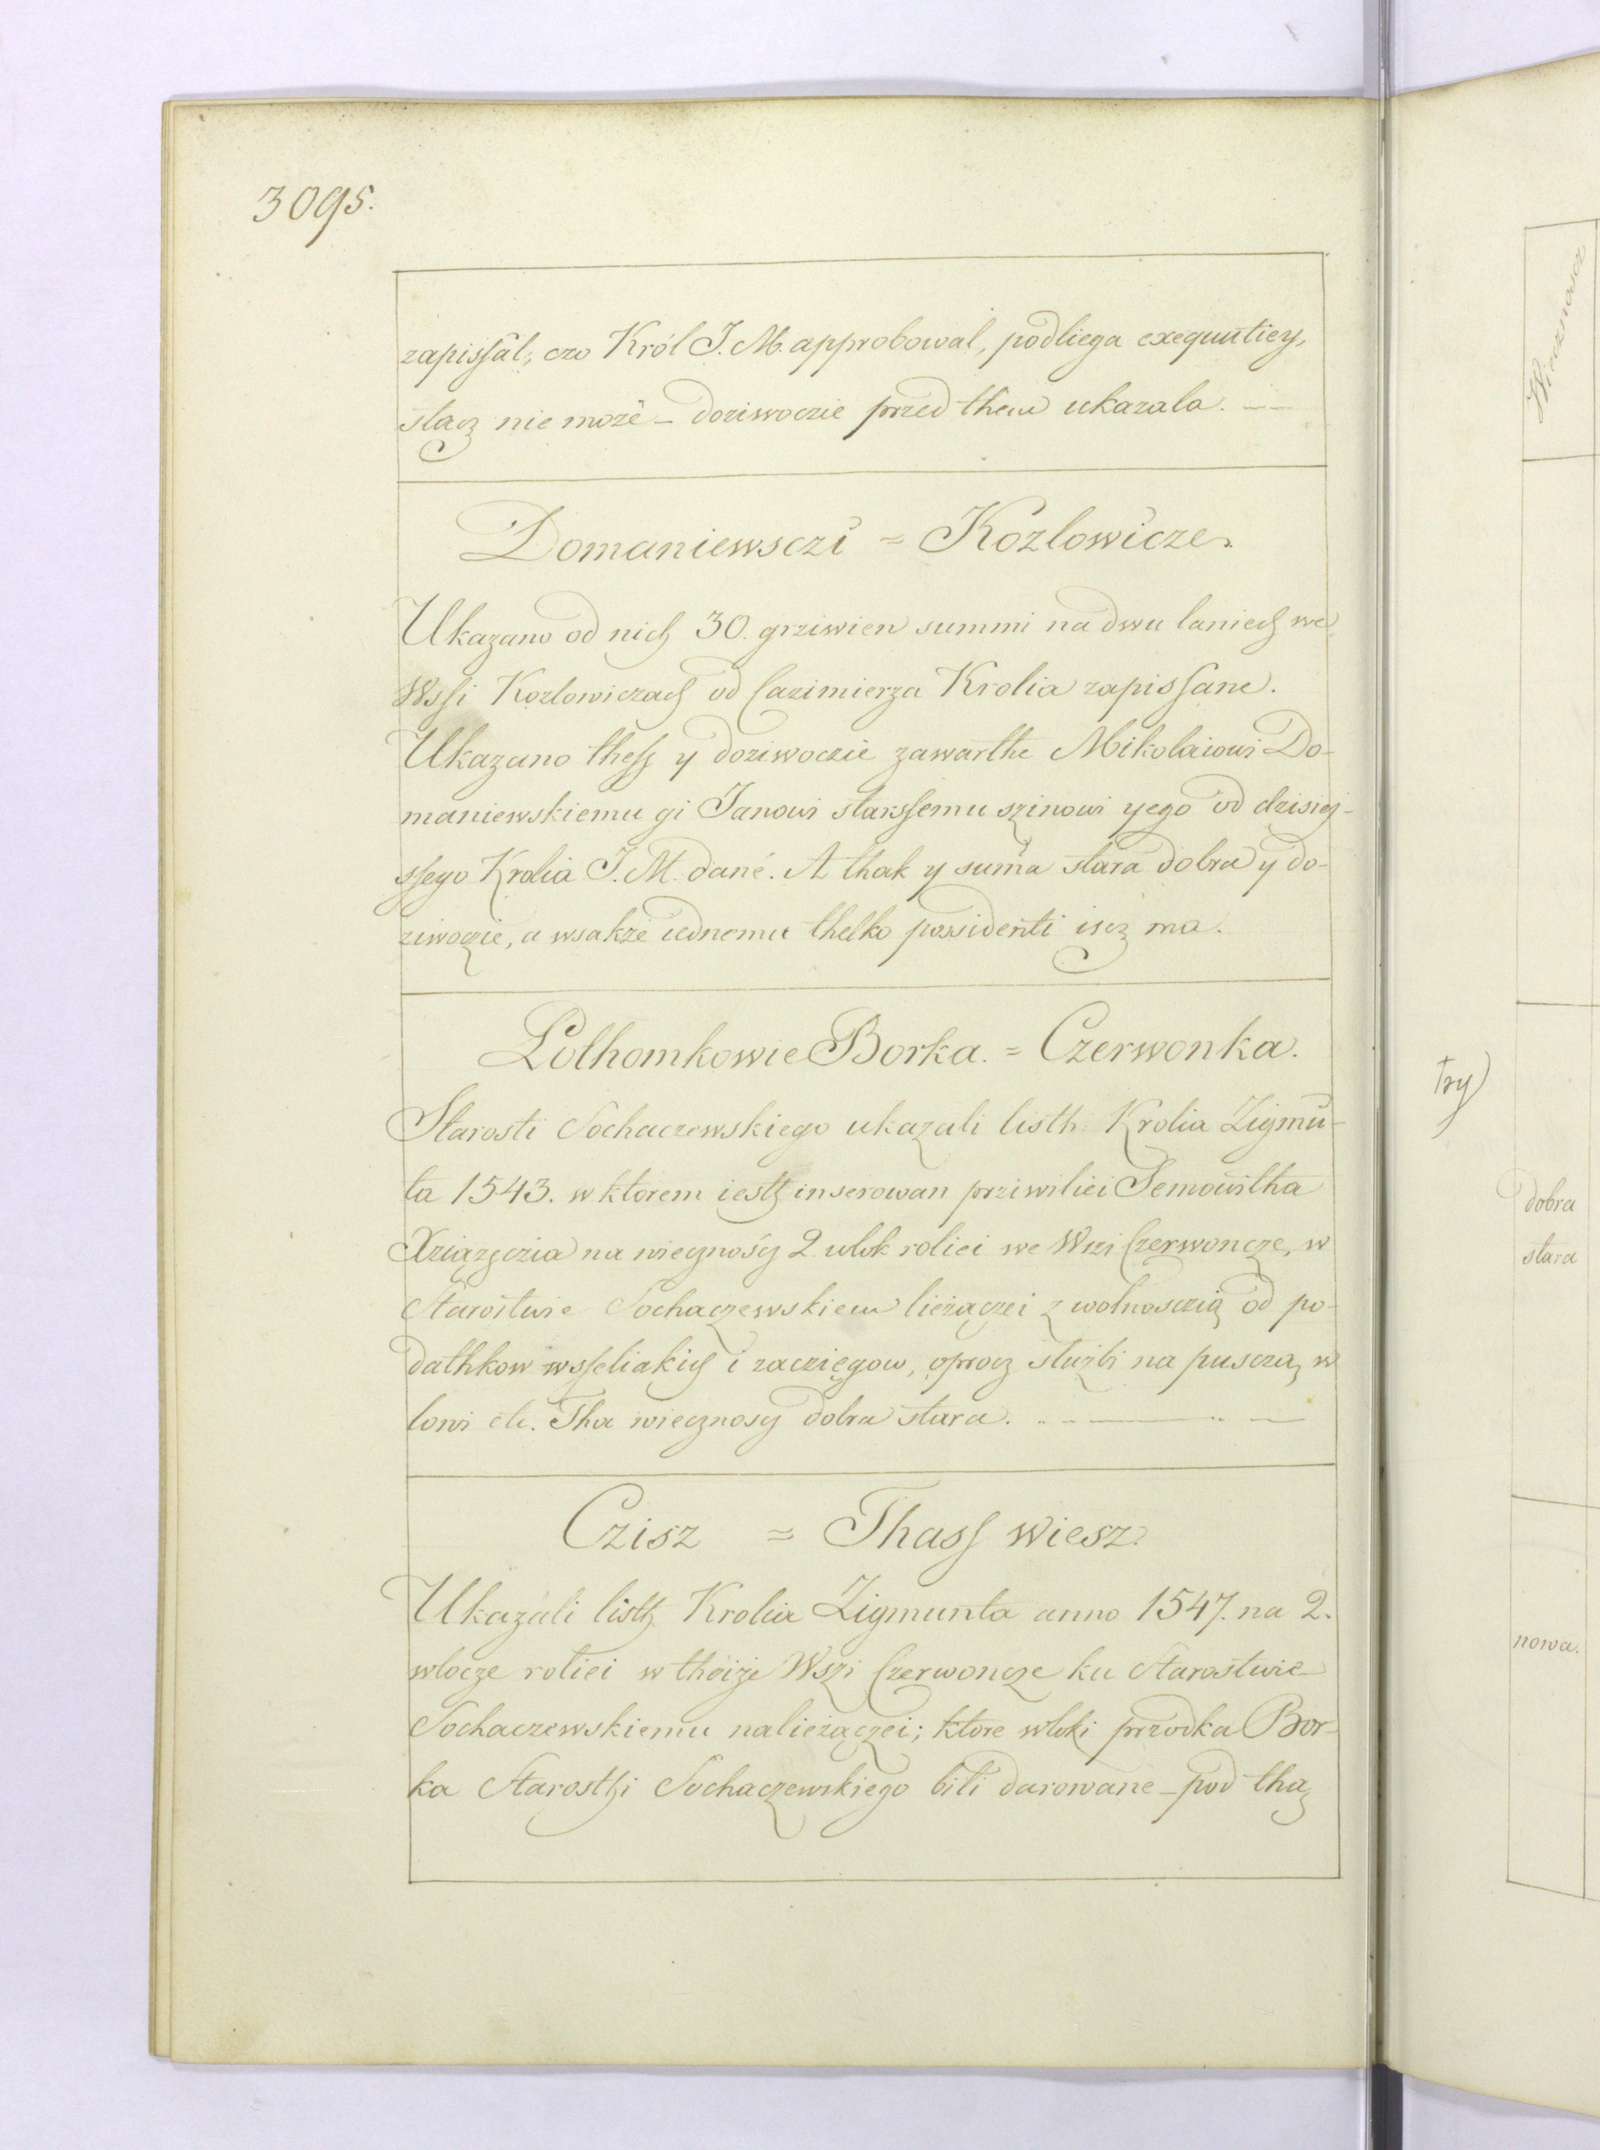 3095.
zapissal, czo Król J. M. approbował, podliega exequutiey,
stacz nie może – doziwoczie przed them ukazala. —
Domaniewsczi = Kozlowicze.
Ukazano od nich 30. grziwien summi na dwu laniech we
Wssi Kozlowiczach od Cazimierza Krolia zapissane.
Ukazano thess y doziwoczie zawarthe Mikolaiowi Do-
maniewskiemu gi Janowi starssemu szinowi yego od dzisiej-
ssego Krolia J. M. dané. A thak y suma stara dobra y do-
ziwoczie, a wsakże iednemu thelko possidenti iscz ma.
Pothomkowie Borka. = Czerwonka.
Starosti Sochaczewskiego ukazali listh Krolia Zigmu-
ta 1543. w ktorem iesth inserowan prziwiliei Semowitha
Xziązęczia na wiecznoścz 2 wlok roliei we Wszi Czerwoncze, w
Starostwie Sochaczewskiem lieżączei z wolnosczią od po-
dathkow wsseliakich i zacziegow, oprocz służbi na puscza, w
lowi etc. Tha wiecznoscz dobra stara.
Czisz = Thass wiesz.
Ukazali listh Krolia Zigmunta anno 1547. na 2.
wlocze roliei w theiże Wszi Czerwoncze ku Starostwie
Sochaczewskiemu nalieżączei; ktore wloki przodka Bor-
ka Starosthi Sochaczewskiego bili darowane – pod tha
try
dobra
stara
nowa.